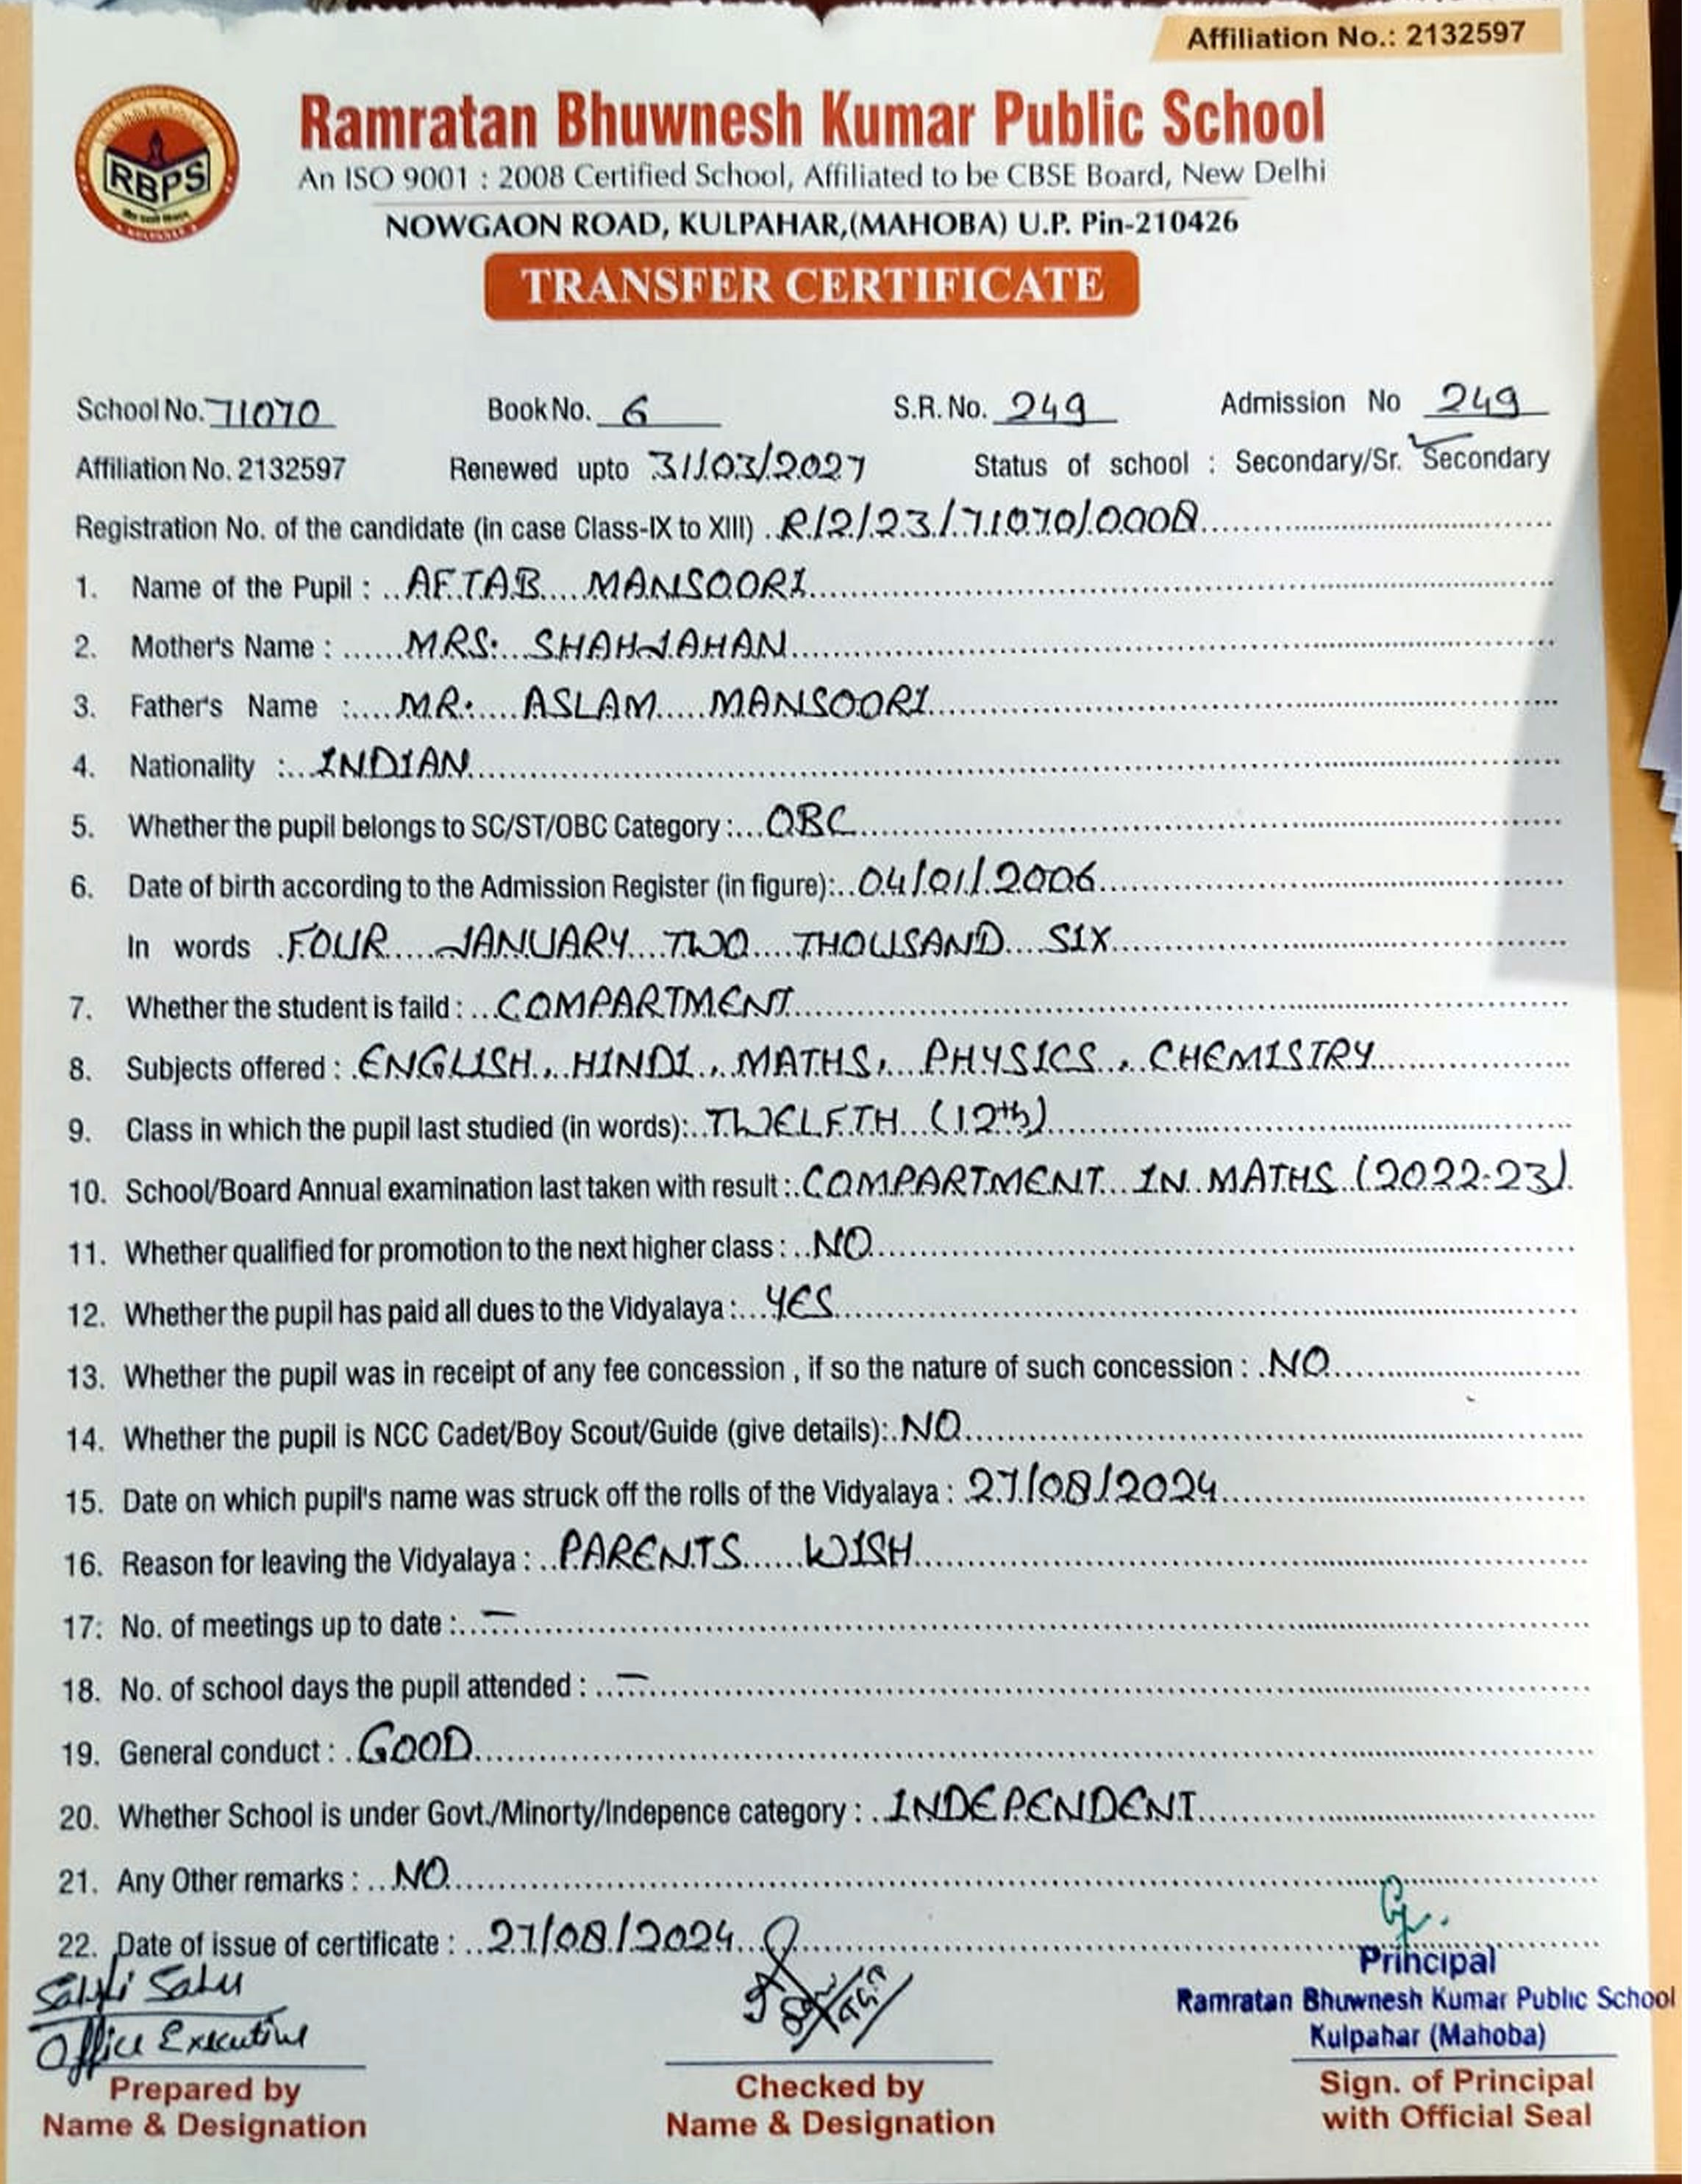 Affiliation No.: 2132597
RBPS
Ramratan Bhuwnesh Kumar Public School
An ISO 9001 : 2008 Certified School, Affiliated to be CBSE Board, New Delhi
NOWGAON ROAD, KULPAHAR,(MAHOBA) U.P. Pin-210426
TRANSFER CERTIFICATE
School No. 71070 Book No. 6 S.R. No. 249 Admission No 249
Affiliation No. 2132597 Renewed upto 31/03/2027 Status of school : Secondary/Sr. Secondary
Registration No. of the candidate (in case Class-IX to XIII) R/2/23/71070/0008
1. Name of the Pupil : AFTAB MANSOORI
2. Mother's Name : MRS. SHAHJAHAN
3. Father's Name : MR. ASLAM MANSOORI
4. Nationality : INDIAN
5. Whether the pupil belongs to SC/ST/OBC Category : OBC
6. Date of birth according to the Admission Register (in figure): 04/01/2006
In words FOUR JANUARY TWO THOUSAND SIX
7. Whether the student is faild : COMPARTMENT
8. Subjects offered : ENGLISH, HINDI, MATHS, PHYSICS, CHEMISTRY
9. Class in which the pupil last studied (in words): TWELFTH (12th)
10. School/Board Annual examination last taken with result : COMPARTMENT IN MATHS (2022-23)
11. Whether qualified for promotion to the next higher class : NO
12. Whether the pupil has paid all dues to the Vidyalaya : YES
13. Whether the pupil was in receipt of any fee concession , if so the nature of such concession : NO
14. Whether the pupil is NCC Cadet/Boy Scout/Guide (give details): NO
15. Date on which pupil's name was struck off the rolls of the Vidyalaya : 27/08/2024
16. Reason for leaving the Vidyalaya : PARENTS WISH
17: No. of meetings up to date : —
18. No. of school days the pupil attended : —
19. General conduct : GOOD
20. Whether School is under Govt./Minorty/Indepence category : INDEPENDENT
21. Any Other remarks : NO
22. Date of issue of certificate : 27/08/2024
Sahu
Office Executive
Principal
Ramratan Bhuwnesh Kumar Public School
Kulpahar (Mahoba)
Prepared by
Name & Designation
Checked by
Name & Designation
Sign. of Principal
with Official Seal